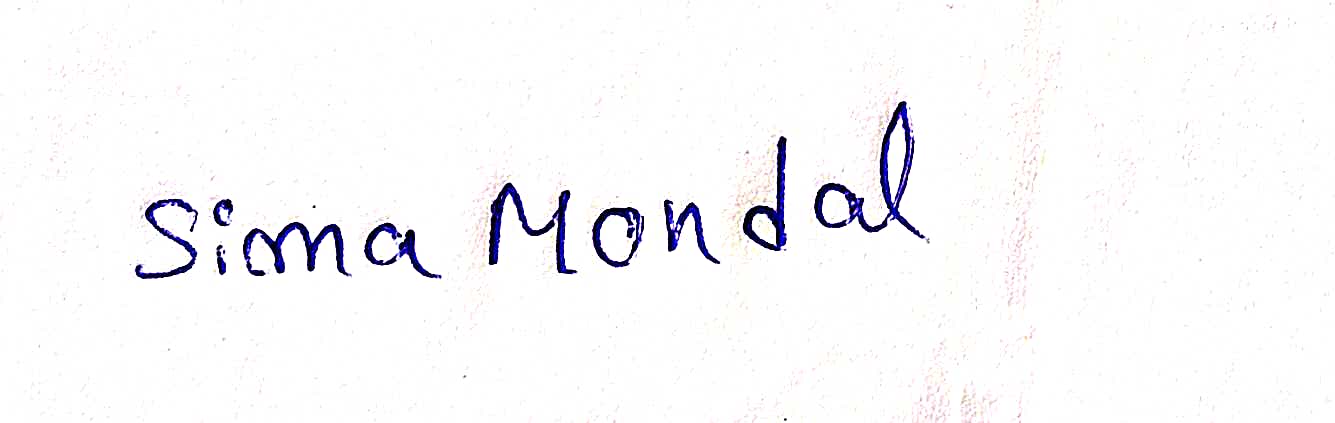 Sima Mondal